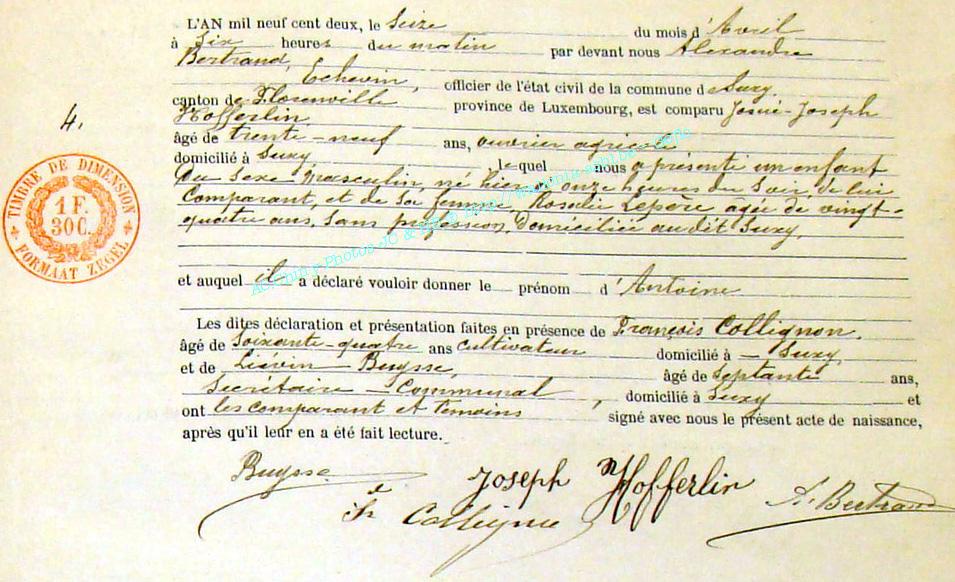 L'AN mil neuf cent deux, le Seize du mois d'Avril
à Six heures du matin par devant nous Alexandre
Bertrand, Echevin, officier de l'état civil de la commune de Suxy,
canton de Florenville province de Luxembourg, est comparu Josué-Joseph
Hofferlin
âgé de trente-neuf ans, ouvrier agricole
domicilié à Suxy, le quel nous a présenté un enfant
du sexe masculin, né hier à onze heures du soir, de lui
Comparant, et de Sa femme Rosalie Lepère agée de vingt-
quatre ans, Sans profession, Domiciliée au dit Suxy,
et auquel il a déclaré vouloir donner le prénom d'Antoine
Les dites déclaration et présentation faites en présence de François Collignon,
âgé de Soixante-quatre ans Cultivateur domicilié à Suxy,
et de Liévin Buysse, âgé de Septante ans,
Secrétaire Communal, domicilié à Suxy et
ont les comparant et temoins signé avec nous le présent acte de naissance,
après qu'il leur en a été fait lecture.
4.
TIMBRE DE DIMENSION
1 F.
30 C.
FORMAAT ZEGEL
Buysse
Joseph Hofferlin
Fr Collignon
A. Bertrand